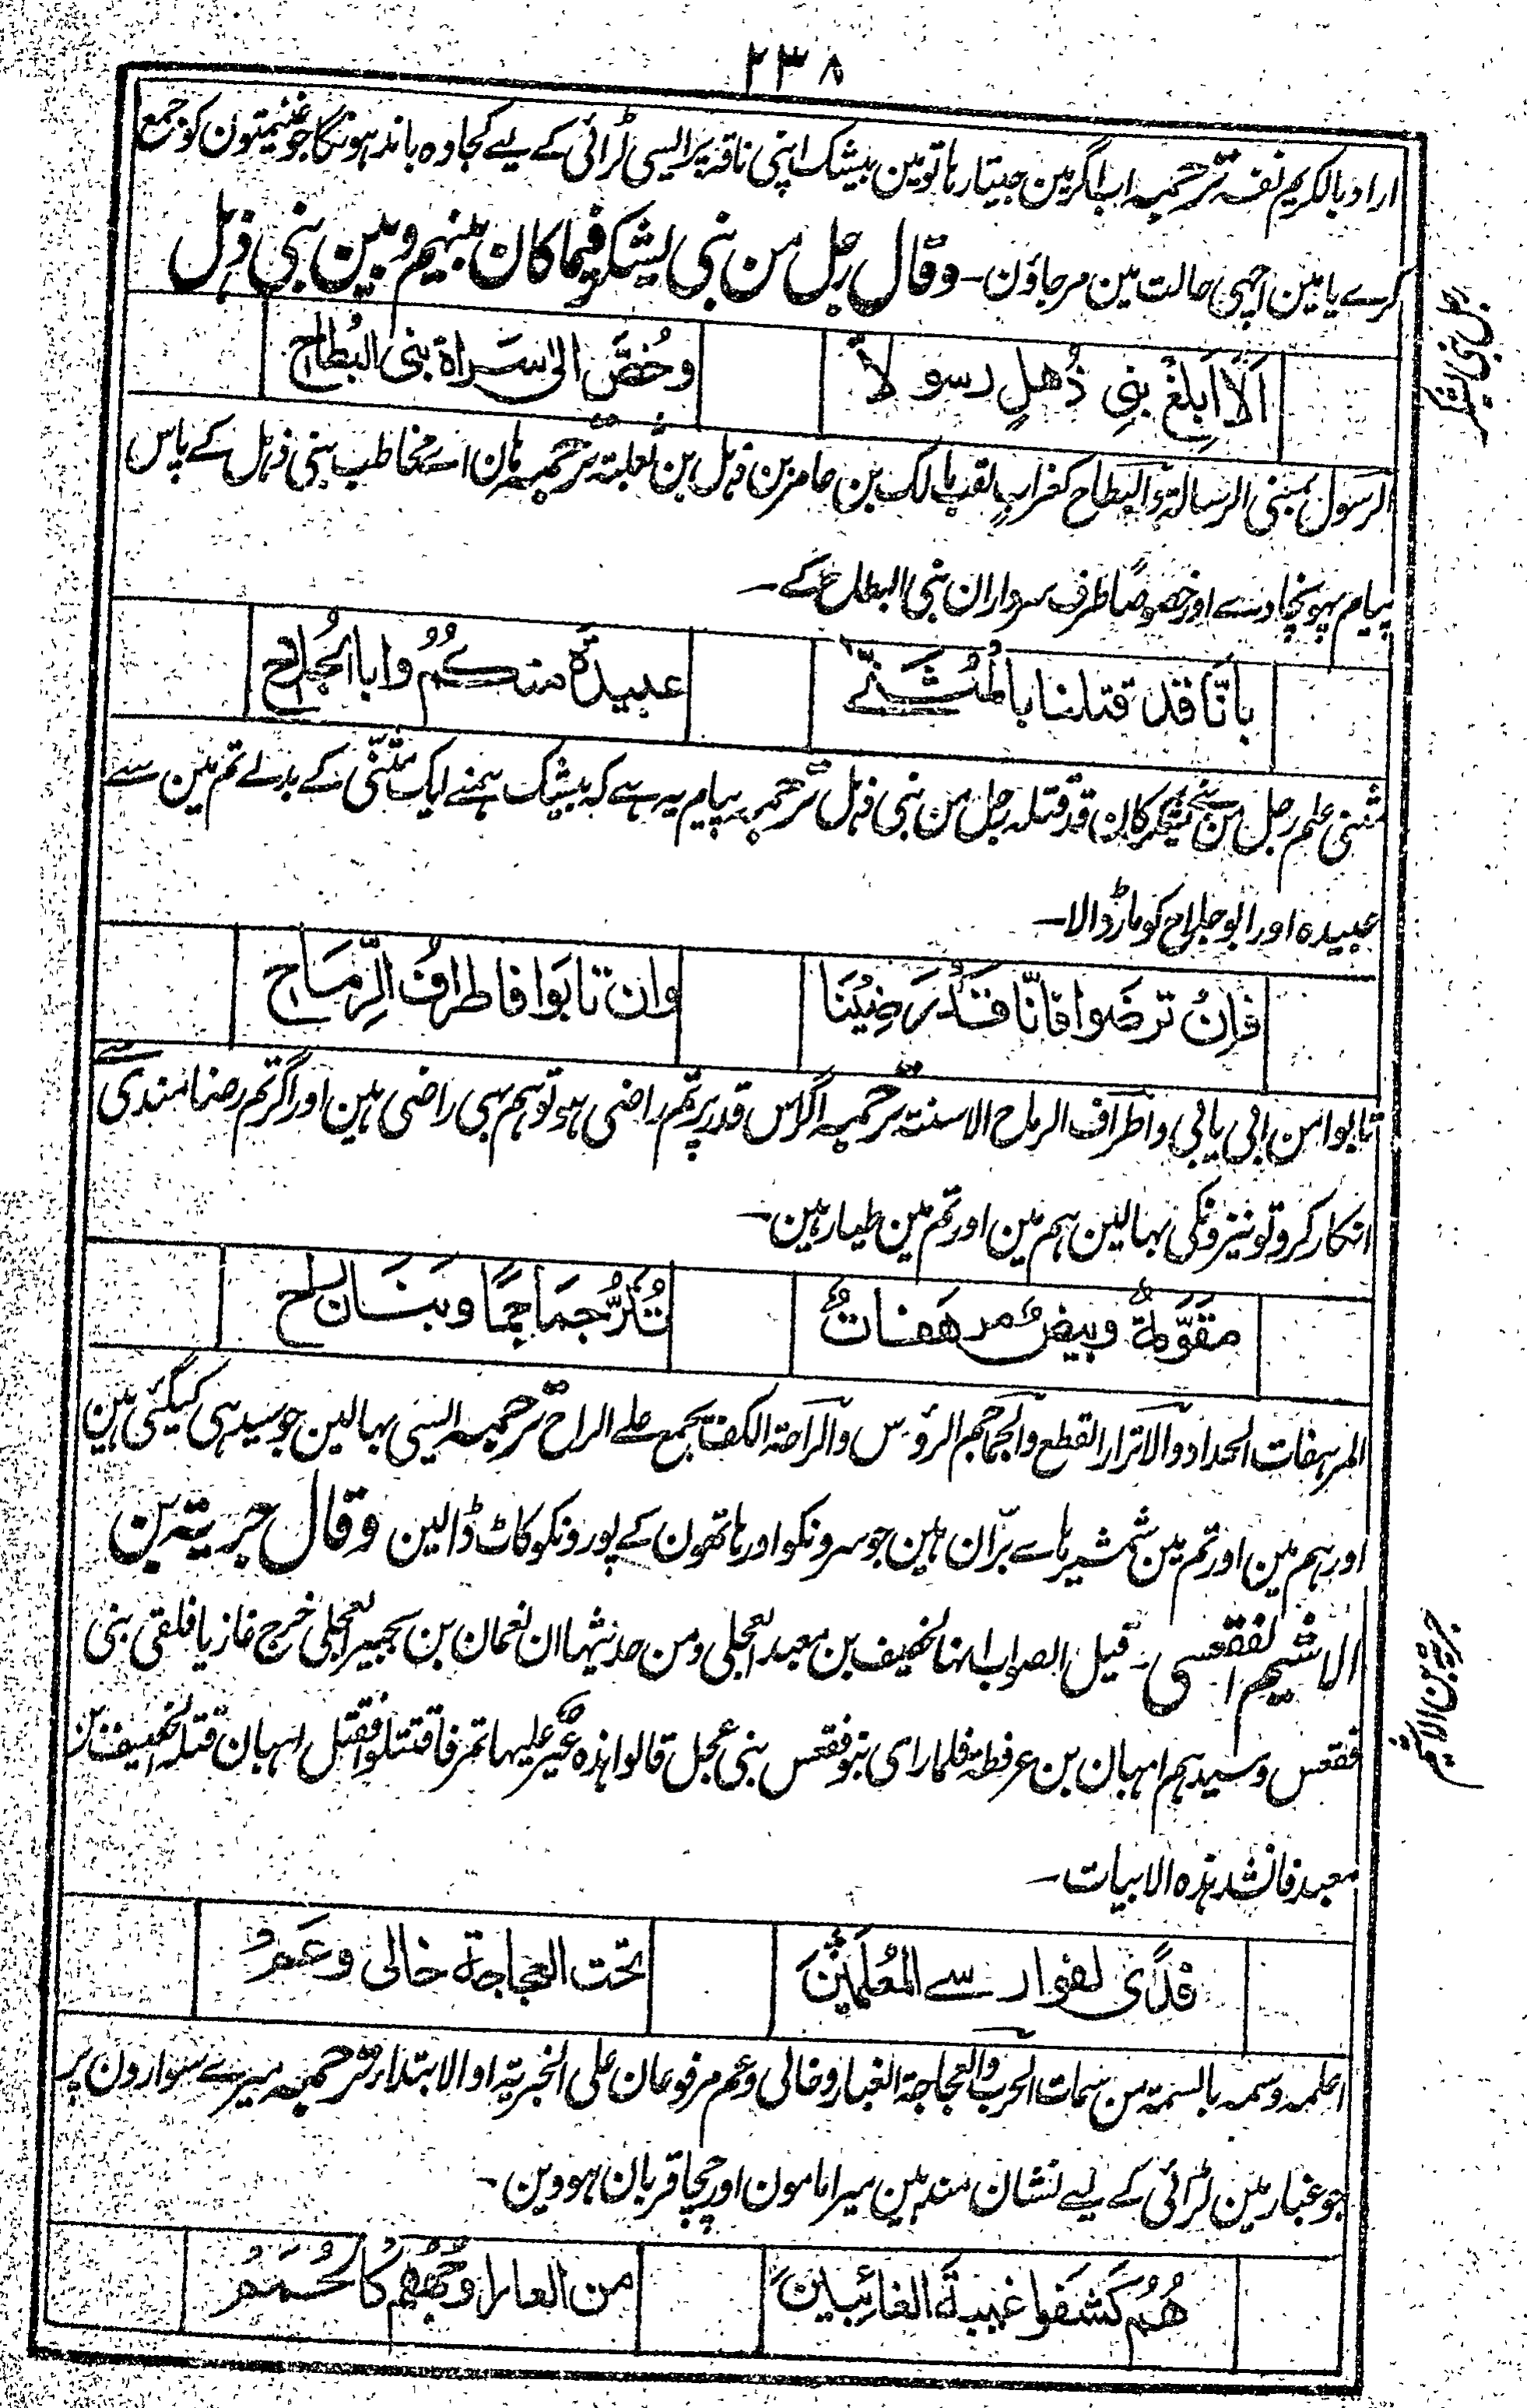 ۲۳۸
اراد بالکریم نفسہ ترجمہ اب اگر مین جیتا رہا تو مین بیشک اپنی ناقہ پر ایسی لڑائی کے لیے کجاوہ باندہونگا جو غنیمتون کو جمع
کرے یا مین اچہی حالت مین مرجاؤن۔ وقال رجل من بنی یشکر فیما کان بینہم وبین بنی ذہل
رجل من بنی یشکر
اَلَا اَبلِغْ بنِی ذُهلٍ رسولًا وخُصَّ الی سَراة بنی البُطاح
الرسول بمعنی الرسالۃ والبطاح کغراب لقب مالک بن عامر بن ذہل بن ثعلبۃ ترجمہ ہان اے مخاطب بنی ذہل کے پاس
پیام پہونچا دے اور خصوصًا طرف سرداران بنی البطاح کے۔
بانّا قد قتلنا بالمُثَنّٰے عبیدةَ منکُمُ وابا الجُلاح
مثنی علم رجل من بنی یشکر کان قد قتلہ رجل من بنی ذہل ترجمہ پیام یہ ہے کہ بیشک ہمنے ایک مثنّٰی کے بدلے تم مین سے
عبیدہ اور ابو جلاح کو مار ڈالا۔
فاِنْ ترضَوا فانّا قَدْ رَضِیْنَا وان تابَوا فاطرافُ الرِّمَاح
تابوا من ابی یابی واطراف الرماح الاسنتہ ترجمہ اگر اس قدر پر تم راضی ہو تو ہم بہی راضی ہین اور اگر تم رضامندی سے
انکار کرو تو نیزونکی بہالین ہم مین اور تم مین طیار ہین۔
مقَوَّمةٌ وبیضٌ مرهَفاتٌ تُتِرُّ جمَاجِمًا وبَنَانَ راح
المرہفات الحداد والاترار القطع والجماجم الرؤس والراحۃ الکف یجمع علے الراح ترجمہ ایسی بہالین جو سیدہی کیگئی ہین
اور ہم مین اور تم مین شمشیر ہاے برّان ہین جو سرونکو اور ہاتھون کے پورونکو کاٹ ڈالین وقال جریبۃ بن
الاشیم الفقعسی۔ قیل الصواب انہا لخفیف بن معبد العجلی ومن حدیثہا ان نعمان بن بجیر العجلی خرج غازیا فلقی بنی
جریبۃ بن الاشیم
فقعس وسیدہم اہبان بن عرفطۃ فلما رای بنو فقعس بنی عجل قالوا ہذہ عیر علیہا تمر فاقتتلوا فقتل اہبان قتلہ الخفیف بن
معبد فانشد ہذہ الابیات۔
فدًی لفوارسے المُعلَمِیْنَ تحت العجاجة خالی وعَمْ
اعلمہ وسمہ بالسمۃ من سمات الحرب والعجاجۃ الغبار وخالی وعم مرفوعان علی الخبریۃ او الابتداء ترجمہ میرے سوارون پر
جو غبار مین لڑائی کے لیے نشان مند ہین میرا مامون اور چچا قربان ہووین۔
هُمُ کَشَفوا غیبةَ الغائبینَ من العار اوجُهُهم کالحُمَمْ